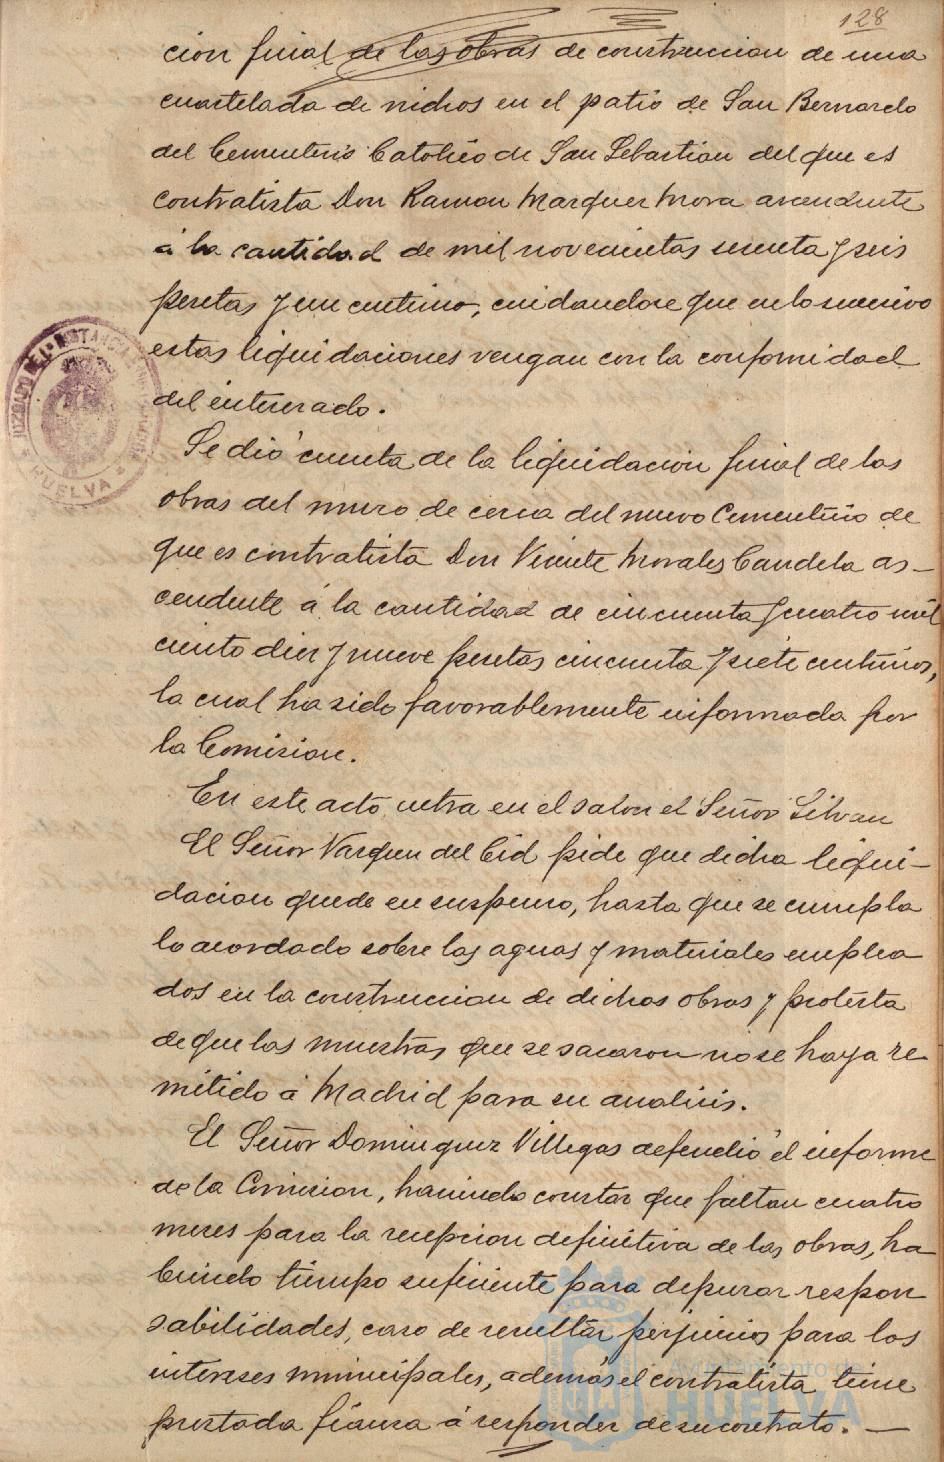 128
cion final de las obras de construccion de una
cuartelada de nichos en el patio de San Bernardo
del Cementerio Catolico de San Sebastian del que es
contratista Don Ramon Marquez Mora ascendente
á la cantidad de mil novecientas sesenta y seis
pesetas y un centimo, cuidandose que en lo sucesivo
estas liquidaciones vengan con la conformidad
del interesado.
Se dió cuenta de la liquidacion final de las
obras del muro de cerca del nuevo Cementerio de
que es contratista Don Vicente Morales Candela as-
cendente á la cantidad de cincuenta y cuatro mil
ciento diez y nueve pesetas cincuenta y siete centimos,
la cual ha sido favorablemente informada por
la Comision.
En este acto entra en el salon el Señor Silvan
El Señor Vazquez del Cid pide que dicha liqui-
dacion quede en suspenso, hasta que se cumpla
lo acordado sobre las aguas y materiales emplea
dos en la construccion de dichas obras y protesta
de que las muestras que se sacaron no se haya re
mitido á Madrid para su analisis.
El Señor Dominguez Villegas defendió el informe
de la Comision, haciendo constar que faltan cuatro
meses para la recepcion definitiva de las obras, ha
biendo tiempo suficiente para depurar respon
sabilidades, caso de resultar perjuicios para los
intereses municipales, además el contratista tiene
prestada fianza á responder de su contrato. —
JUZGADO DE 1ª INSTANCIA
HUELVA
Ayuntamiento de
HUELVA